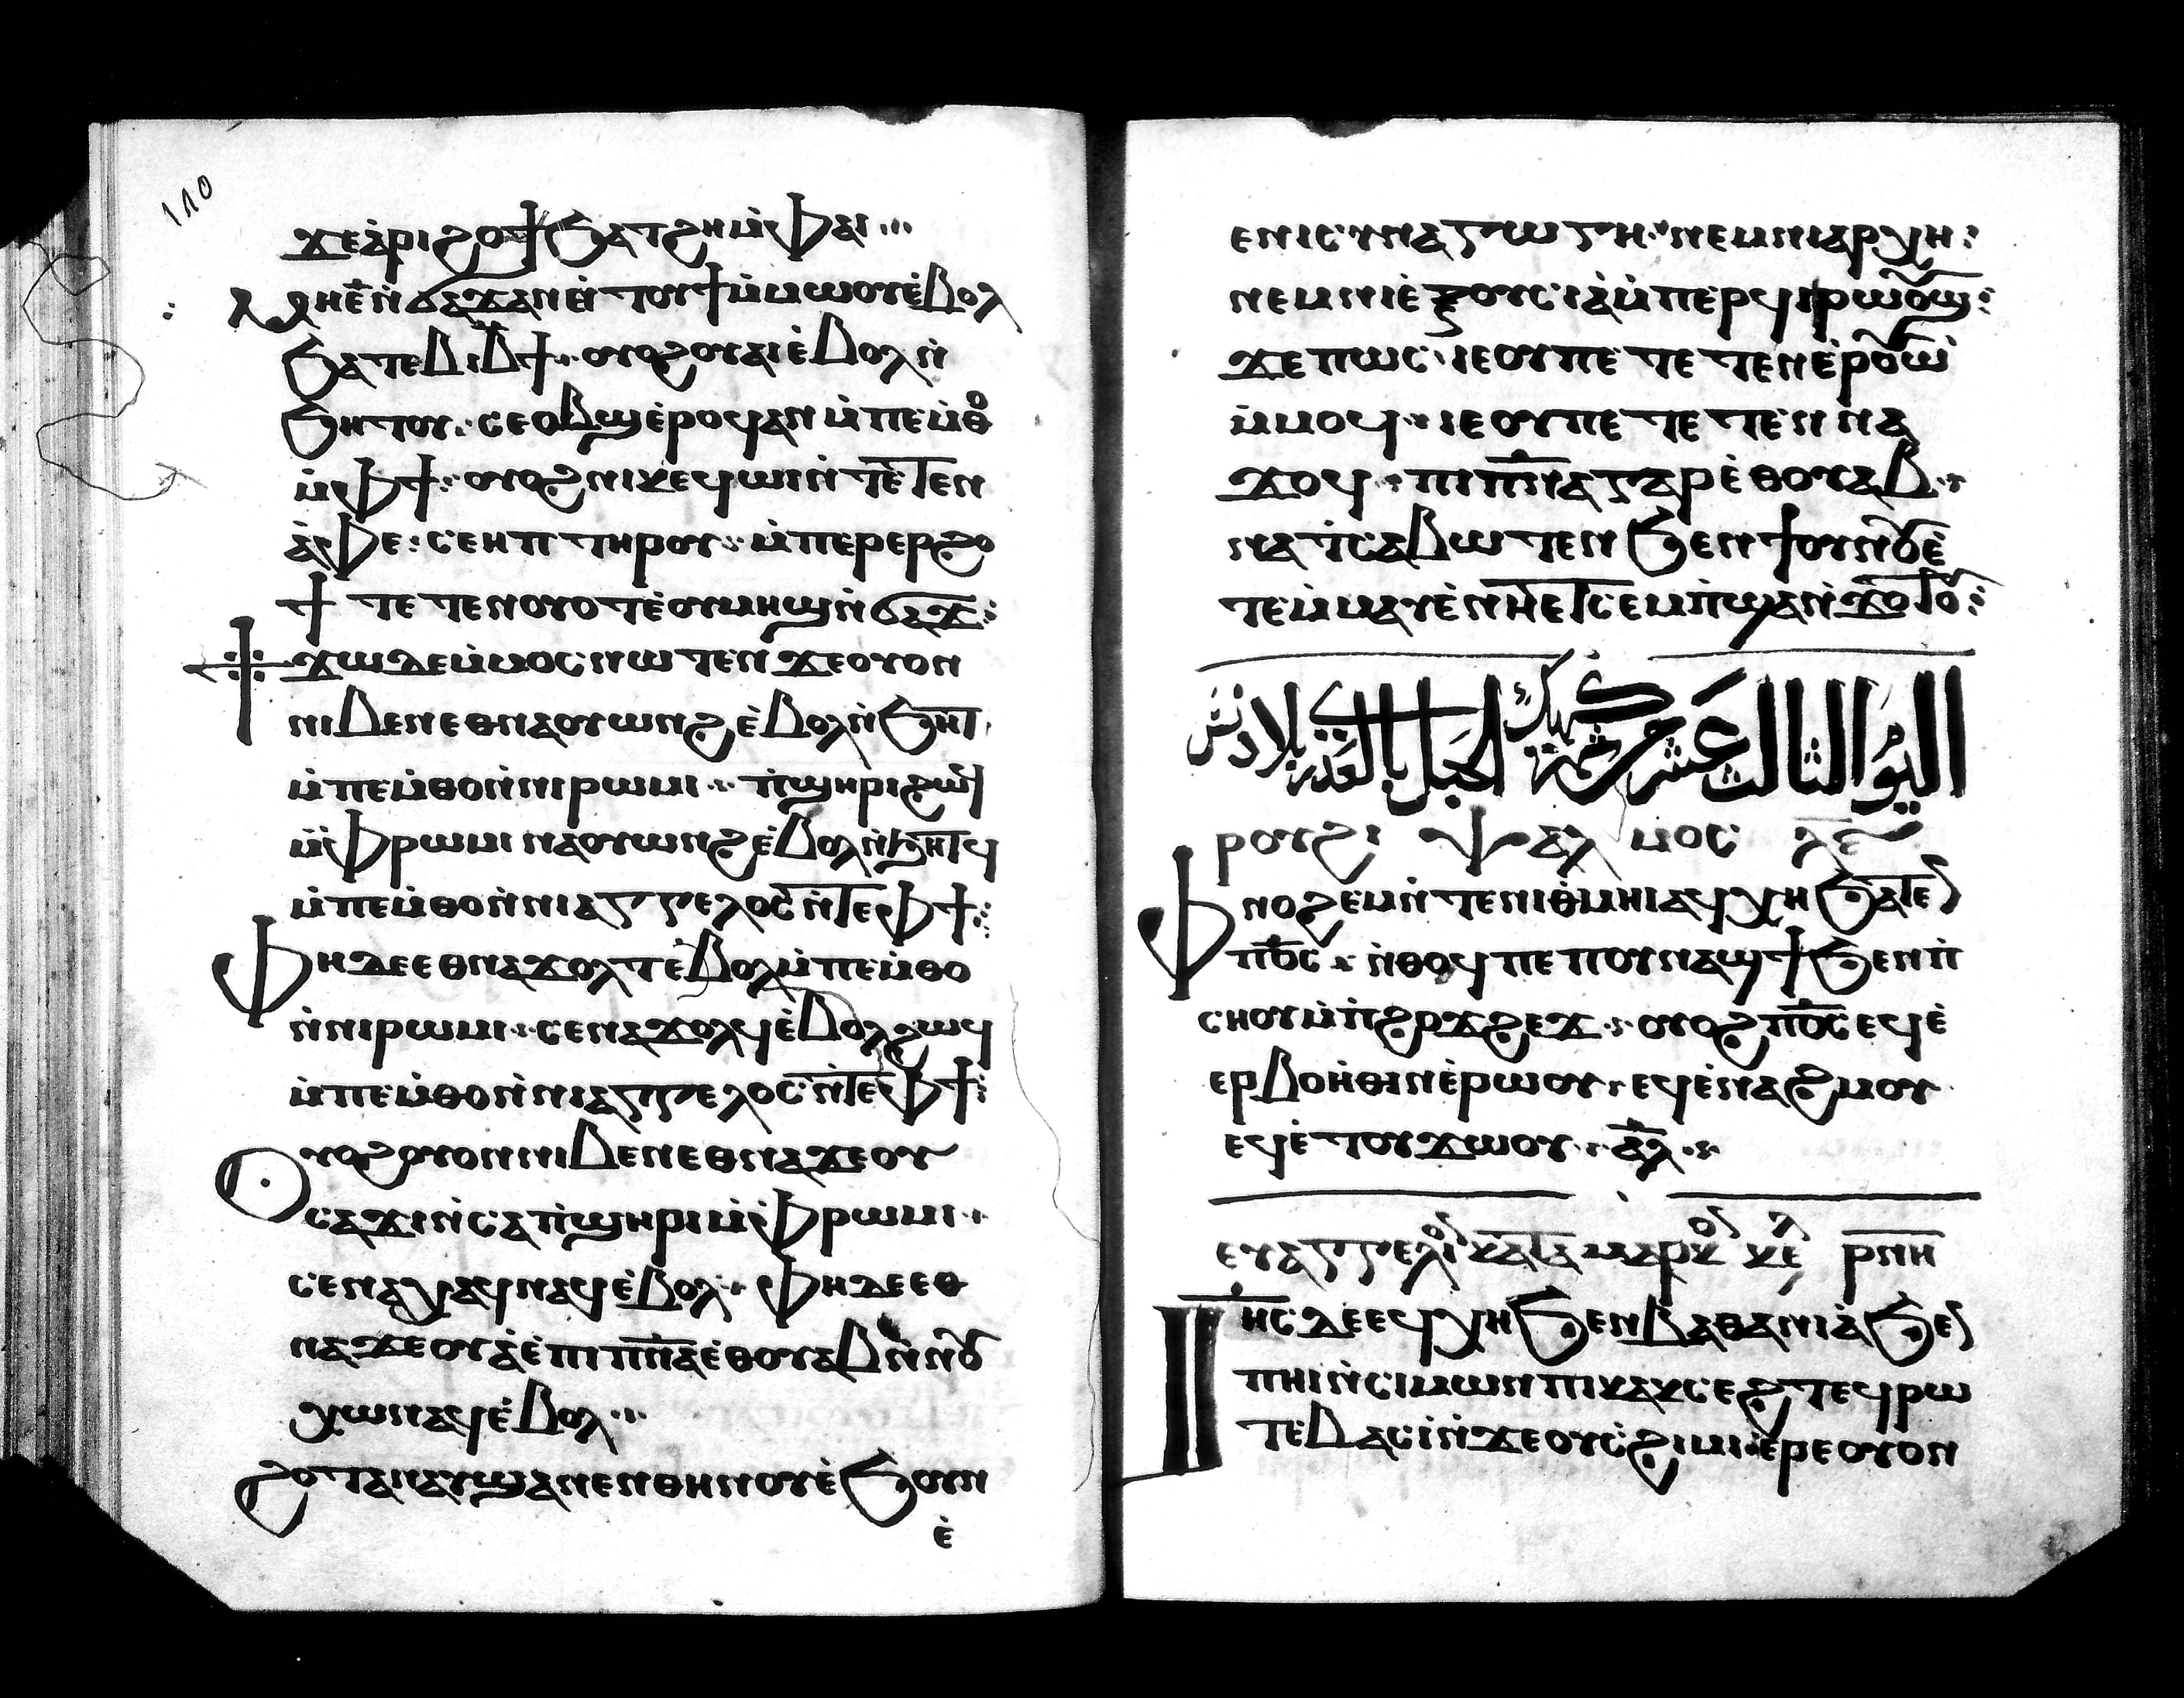 110
ϫⲉⲁ̀ⲣⲓϩⲟϯϧⲁⲧϩⲏⲙ̀ⲫⲁⲓ
ⲙⲏⲉ̄ⲛ̀ϭⲁϫⲁⲛⲉⲛ̀ⲧⲟⲩϯⲙ̀ⲙⲱⲟⲩⲉ̀ⲃⲟⲗ
ϧⲁⲧⲉⲃⲓⲃ̄ϯ ⲟⲩⲟϩⲟⲩⲁⲓⲉ̀ⲃⲟⲗⲛ̀
ϧⲏⲧⲟⲩ ⲥⲉⲟⲃϣⲉ̀ⲣⲟϥⲁⲛ ⲙ̀ⲡⲉⲙ̀ⲑⲟ
ⲙ̀ⲫϯ ⲟⲩⲟϩⲛⲓⲕⲉϥⲱⲓⲛ̀ⲧⲉ̄ⲧⲉⲛ
ⲁ̀ⲫⲉ ⲥⲉⲏⲡ ⲧⲏⲣⲟⲩ ⲙ̀ⲡⲉⲣⲉⲣϩⲟ
ϯ ⲧⲉⲧⲉⲛⲟⲩⲟⲧⲉ̀ⲟⲩⲙⲏϣⲛ̀ϭⲁϫ
ϯϫⲱⲇⲉⲙ̀ⲙⲟⲥⲛⲱⲧⲉⲛ ϫⲉⲟⲩⲟⲛ
ⲛⲓⲃⲉⲛⲉⲑⲛⲁⲟⲩⲱⲛϩⲉ̀ⲃⲟⲗⲛ̀ϧⲏⲧ
ⲙ̀ⲡⲉⲙ̀ⲑⲟⲛ̀ⲛⲓⲣⲱⲙⲓ ⲡ̀ϣⲏⲣⲓϩⲱϥ
ⲙ̀ⲫⲣⲱⲙⲓ ⲛⲁⲟⲩⲱⲛϩⲉ̀ⲃⲟⲗⲛ̀ϧⲏⲧϥ
ⲙ̀ⲡⲉⲙ̀ⲑⲟⲛ̀ⲛⲓⲁⲅⲅⲉⲗⲟⲥⲛ̀ⲧⲉⲫϯ
ⲫⲏⲇⲉⲉⲑⲛⲁϫⲟⲗⲧⲉⲃⲟⲗⲙ̀ⲡⲉⲙ̀ⲑⲟ
ⲛ̀ⲛⲓⲣⲱⲙⲓ ⲥⲉⲛⲁϫⲟⲗϥⲉ̀ⲃⲟⲗϩⲱϥ
ⲙ̀ⲡⲉⲙ̀ⲑⲟⲛ̀ⲛⲓⲁⲅⲅⲉⲗⲟⲥⲛ̀ⲧⲉⲫϯ
ⲟⲩⲟϩⲟⲩⲟⲛⲛⲓⲃⲉⲛⲉⲑⲛⲁϫⲉⲟⲩ
ⲥⲁϫⲓⲛ̀ⲥⲁⲡ̀ϣⲏⲣⲓⲙ̀ⲫⲣⲱⲙⲓ
ⲥⲉⲛⲁⲭⲁϥⲛⲁϥⲉ̀ⲃⲟⲗ ⲫⲏⲇⲉⲉⲑ
ⲛⲁϫⲉⲟⲩⲁ̀ⲉ̀ⲡⲓⲡⲛ̄ⲁⲉ̀ⲑⲟⲩⲁⲃⲛ̀ⲛⲟⲩ
ⲭⲱⲛⲁϥⲉ̀ⲃⲟⲗ
ϩⲟⲧⲁⲛⲁⲩϣⲁⲛⲉⲛⲑⲏⲛⲟⲩⲉ̀ϧⲟⲩⲛ
ⲉ̀
ⲉⲛⲓⲥⲩⲛⲁⲅⲱⲅⲏ ⲛⲉⲙⲛⲓⲁⲣⲭⲏ
ⲛⲉⲙⲛⲓⲉ̀ⲝⲟⲩⲥⲓⲁ̀ⲙ̀ⲡⲉⲣϥⲓⲣⲱⲟⲩϣ
ϫⲉⲡⲱⲥ ⲓⲉⲟⲩⲡⲉ ⲧⲉⲧⲉⲛⲉ̀ⲣⲟⲩⲱ̀
ⲙ̀ⲙⲟϥ ⲓⲉⲟⲩⲡⲉ ⲧⲉⲧⲉⲛⲛⲁ
ϫⲟϥ ⲡⲓⲡⲛ̄ⲁⲅⲁⲣⲉ̀ⲑⲟⲩⲁⲃ
ⲛⲁⲧ̀ⲥⲁⲃⲱⲧⲉⲛ ϧⲉⲛϯⲟⲩⲛⲟⲩⲉ̀
ⲧⲉⲙ̀ⲙⲁⲩⲉ̀ⲛⲏⲉⲧⲥⲉⲙ̀ⲡϣⲁⲛ̀ϫⲟⲧⲟⲩ
اليوم الثالث عشر من كيهك
ⲣⲟⲩϩⲓ ⲯⲁⲗⲙⲟⲥ ⲗⲉ
ⲫⲛⲟϩⲉⲙⲛ̀ⲧⲉⲛⲓⲑ̀ⲙⲏⲓⲁϥⲭⲏϧⲁⲧⲉⲛ
ⲡⲟ̄ⲥ̄ ⲛ̀ⲑⲟϥⲡⲉ ⲡⲟⲩⲛⲁϣϯϧⲉⲛⲡ̀
ⲥⲏⲟⲩⲙ̀ⲡ̀ϩⲣϫϩⲉϫ ⲟⲩⲟϩⲡⲟ̄ⲥ̄ⲉϥⲉ̀
ⲉⲣⲃⲟⲏ̀ⲑⲓⲛⲉ̀ⲣⲱⲟⲩ ⲉϥⲉ̀ⲛⲁϩⲙⲟⲩ
ⲉϥⲉ̀ⲧⲟⲩϫⲱⲟⲩ ⲁ̄ⲗ̄
ⲉⲩⲁⲅⲅⲉⲗⲓⲟⲛ ⲕⲁⲧⲁ ⲙⲁⲣⲕⲟⲛ ⲕⲉⲗ ⲣⲛⲏ
ⲓⲏⲥⲇⲉⲉϥⲭⲏϧⲉⲛⲃⲁⲑⲁⲛⲓⲁ̀ϧⲉⲛ
ⲡⲏⲓⲛ̀ⲥⲓⲙⲱⲛⲡⲓⲕⲁⲕⲥⲉϩⲧⲉϥⲣⲱ
ⲧⲉⲃⲁⲥⲓ̀ⲛ̀ϫⲉⲟⲩⲥ̀ϩⲓⲙⲓⲉ̀ⲣⲉⲟⲩⲟⲛ